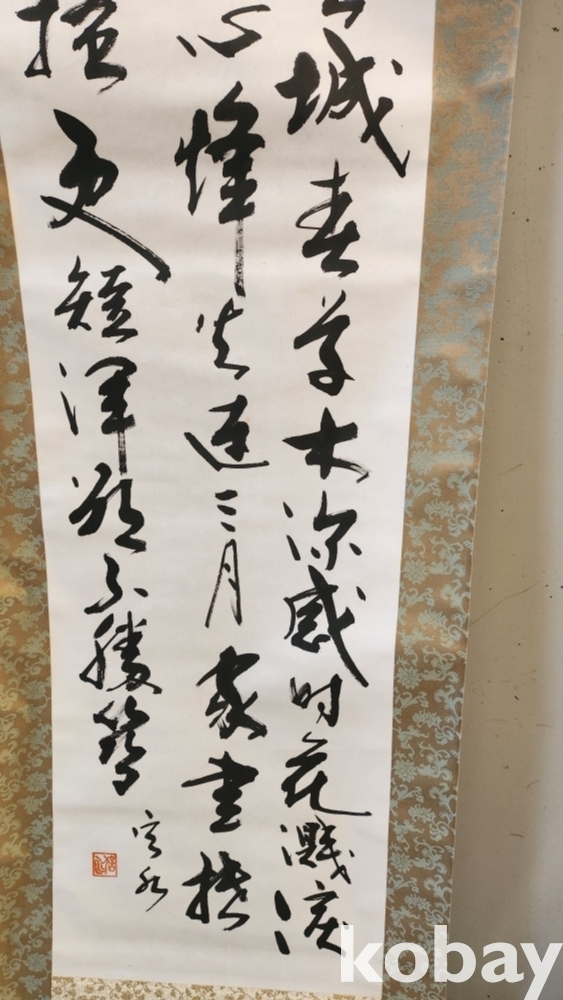 城春草木深感時花濺涙
心烽火連三月家書抵
掻更短渾欲不勝簪
kobay